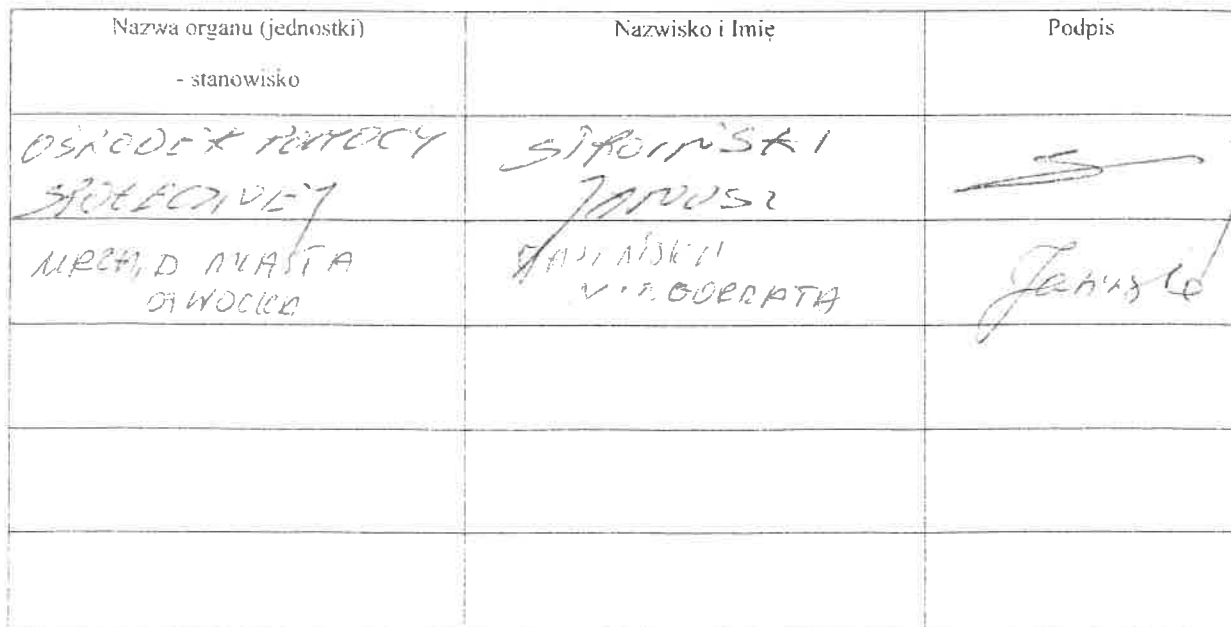 Nazwa organu (jednostki)
- stanowisko
Nazwisko i Imię
Podpis
OŚRODEK POMOCY
SPOŁECZNEJ
STROIŃSKI
JANUSZ
URZĄD MIASTA
OTWOCKA